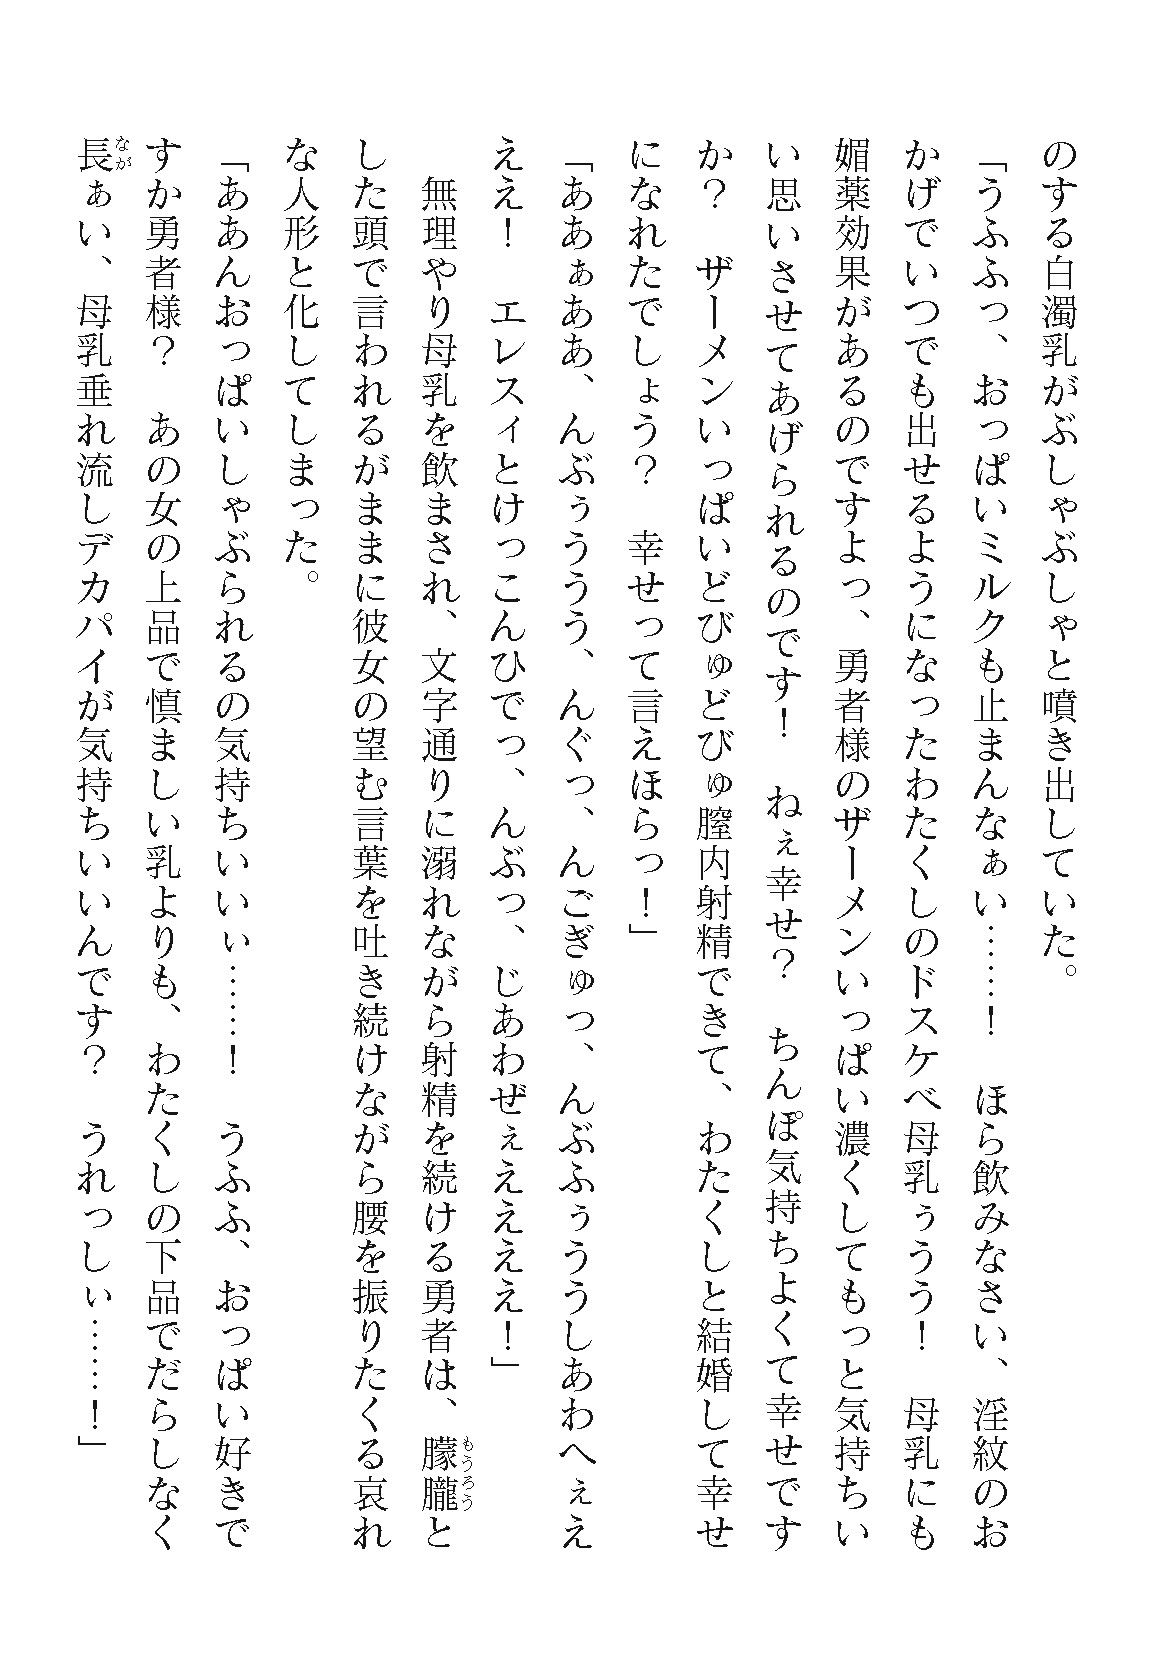 のする白濁乳がぶしゃぶしゃと噴き出していた。
「うふふっ、おっぱいミルクも止まんなぁい……！　ほら飲みなさい、淫紋のお
かげでいつでも出せるようになったわたくしのドスケベ母乳ぅうう！　母乳にも
媚薬効果があるのですよっ、勇者様のザーメンいっぱい濃くしてもっと気持ちい
い思いさせてあげられるのです！　ねぇ幸せ？　ちんぽ気持ちよくて幸せです
か？　ザーメンいっぱいどびゅどびゅ膣内射精できて、わたくしと結婚して幸せ
になれたでしょう？　幸せって言えほらっ！」
「ああぁああ、んぶぅううう、んぐっ、んごぎゅっ、んぶふぅううしあわへぇえ
ええ！　エレスィとけっこんひでっ、んぶっ、じあわぜぇええええ！」
　無理やり母乳を飲まされ、文字通りに溺れながら射精を続ける勇者は、朦朧もうろうと
した頭で言われるがままに彼女の望む言葉を吐き続けながら腰を振りたくる哀れ
な人形と化してしまった。
「ああんおっぱいしゃぶられるの気持ちいいぃ……！　うふふ、おっぱい好きで
すか勇者様？　あの女の上品で慎ましい乳よりも、わたくしの下品でだらしなく
長ながぁい、母乳垂れ流しデカパイが気持ちいいんです？　うれっしぃ……！」